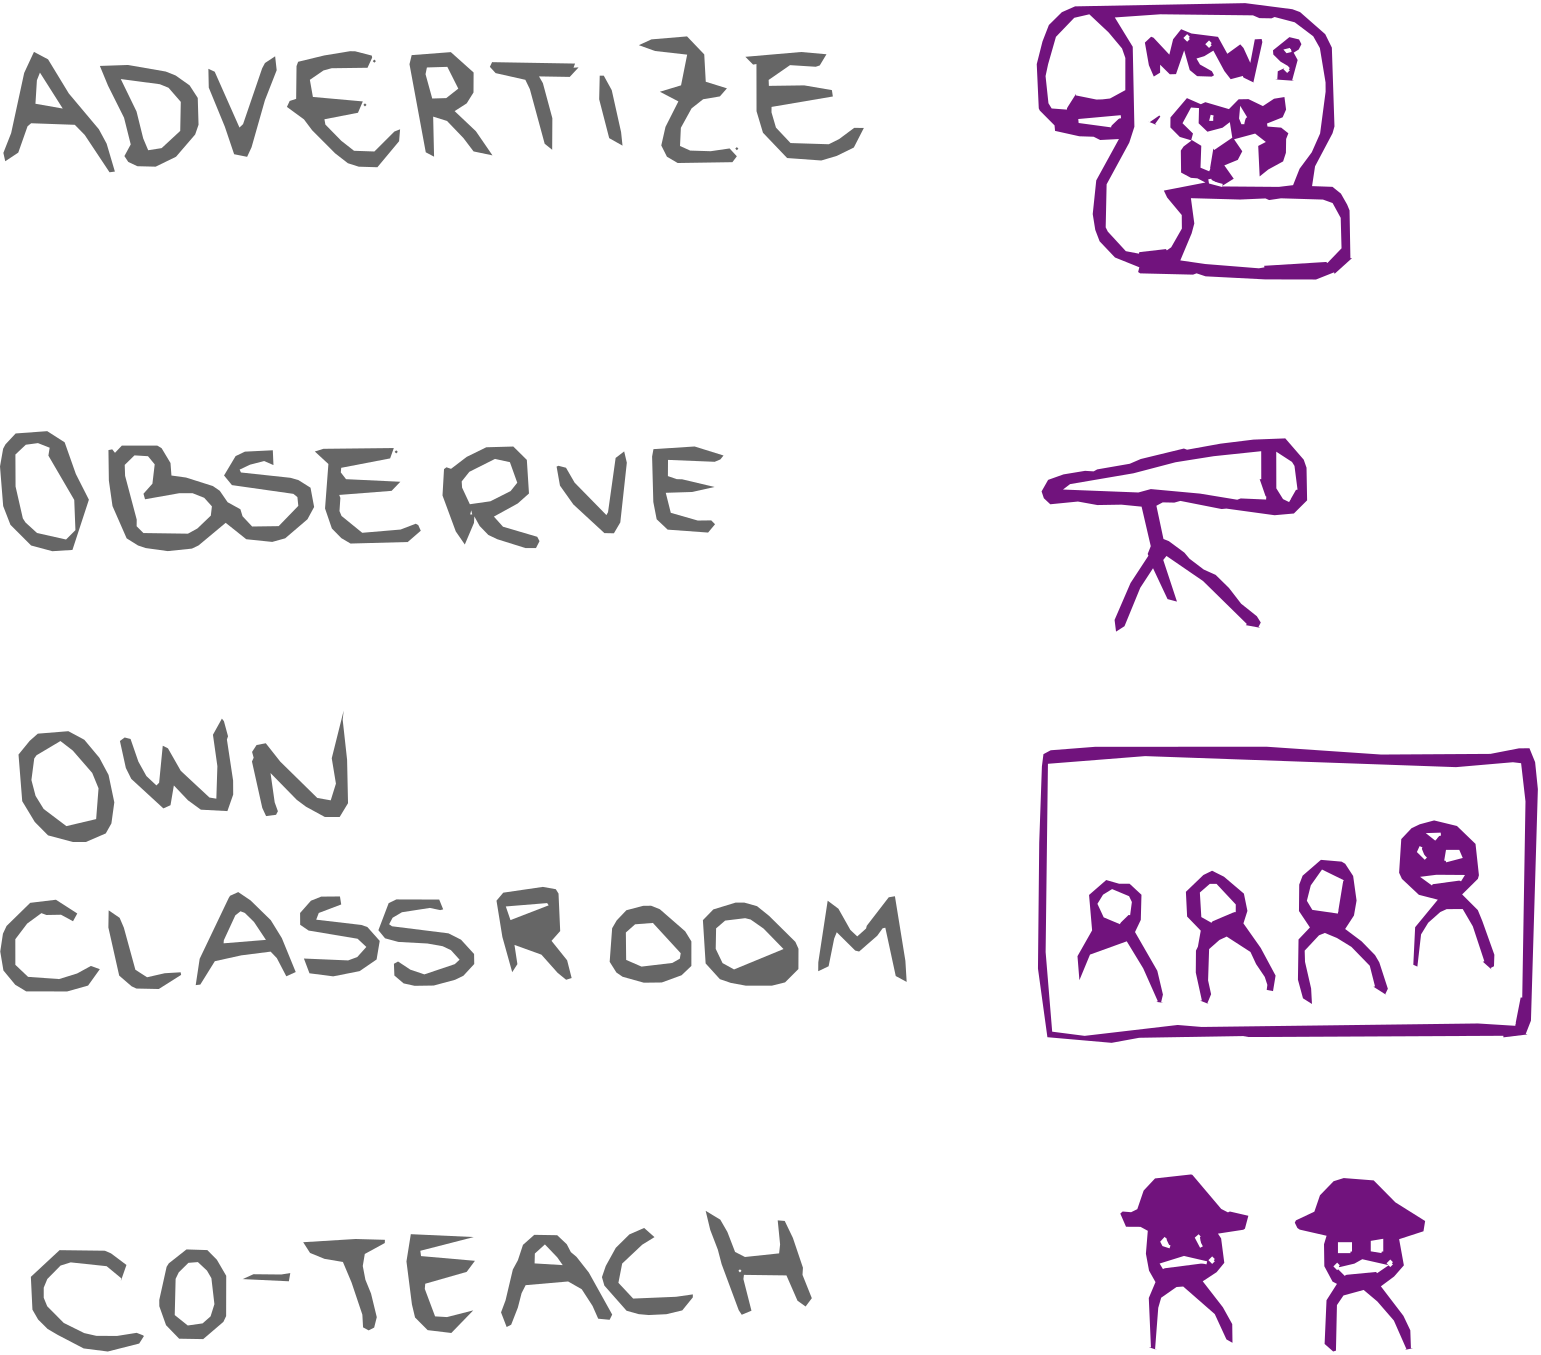 ADVERTIZE
NEWS
OBSERVE
OWN
CLASSROOM
CO-TEACH